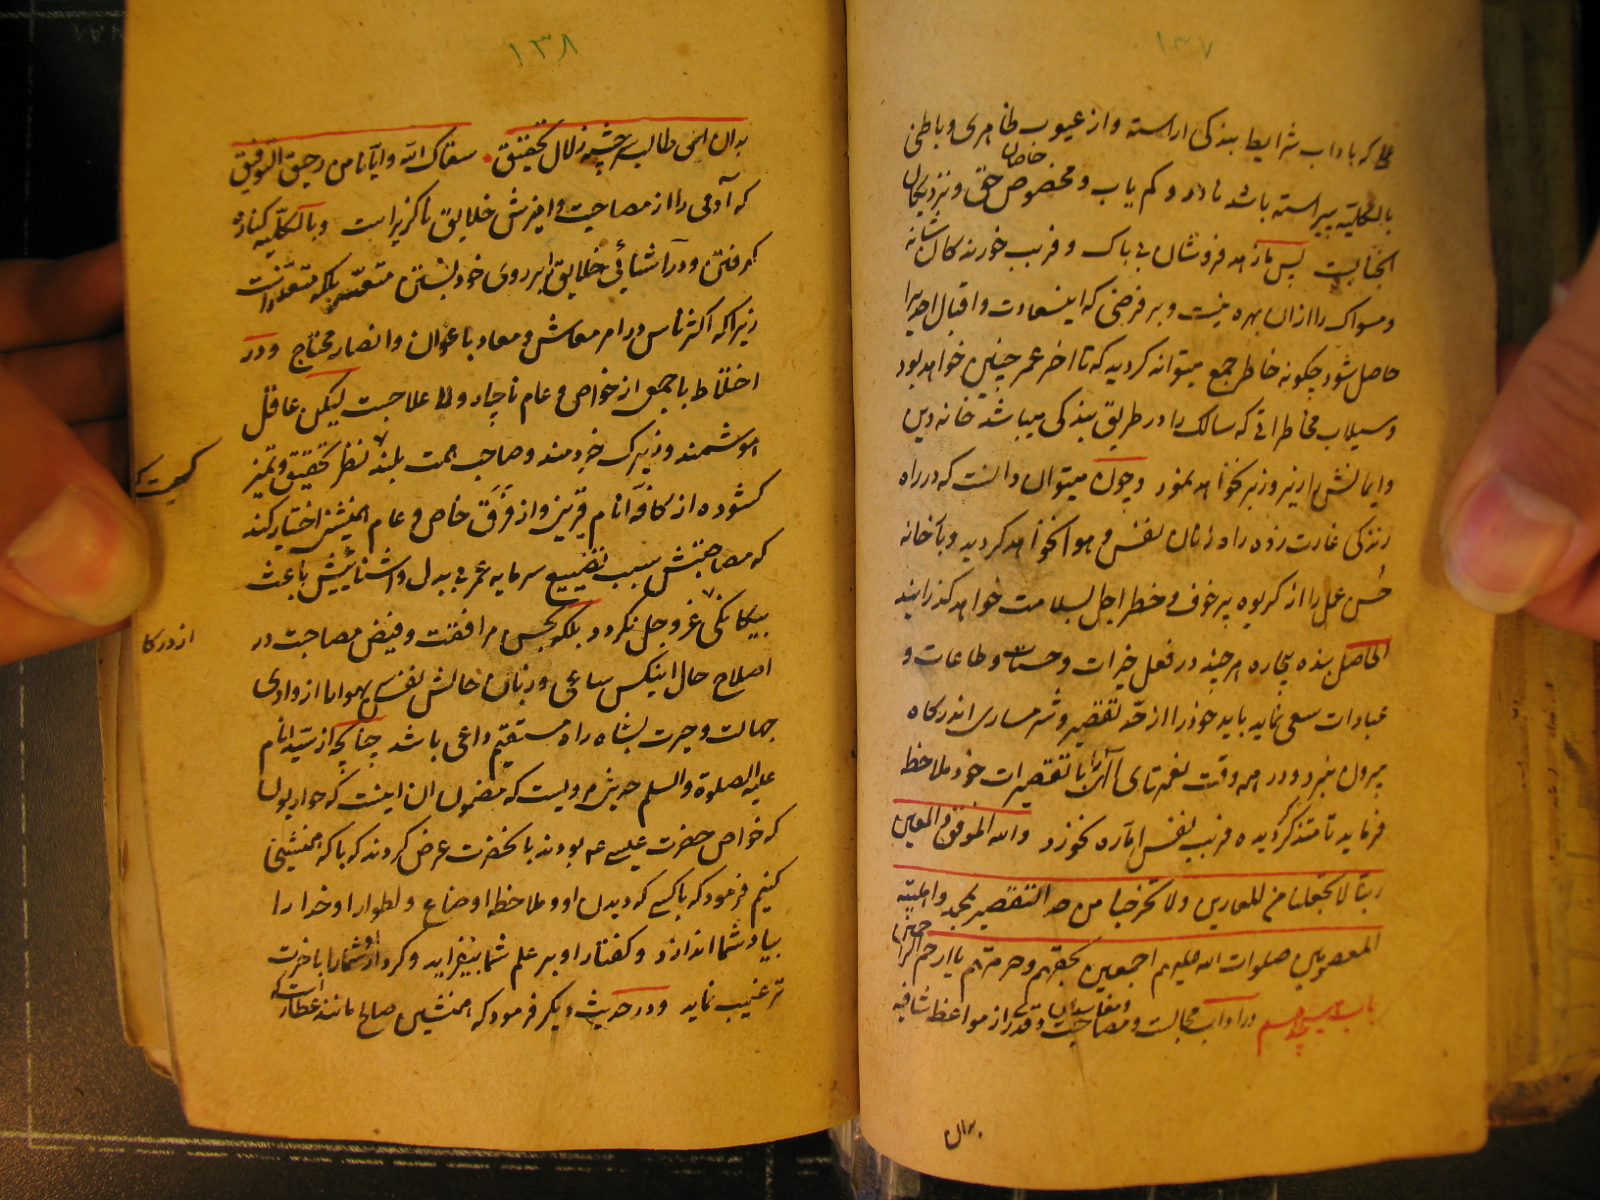 ۱۳۷
عملی که باداب شرایط بندکی اراسته و از عیوب ظاهری و باطنی
بالکلیه پیراسته باشد نادر و کم یاب و مخصوص خاصان حق و نزدیکان
انجنابست پس ما زهد فروشان بی باک و فریب خورندکان شانه
و مسواک را ازان بهره نیست و بر فرضی که اینسعادت و اقبال احدیرا
حاصل شود چکونه خاطر جمع میتواند کردید که تا اخر عمر چنین خواهد بود
و سیلاب مخاطراتی که سالک را در طریق بندکی میباشد خانه دین
و ایمانش را زیر و زبر نخواهد نمود و چون میتوان دانست که در راه
زندکی غارت زده راه زنان نفس و هوا نخواهد کردید و تا خانه
حسن عمل را از کریوه پر خوف و خطر اجل بسلامت خواهد کذرانید
الحاصل بنده بیچاره هر چند در فعل خیرات و حسنات و طاعات و
عبادات سعی نماید باید خود را از حد تقصیر و شرمساری اندرکاه
بیرون نبرد و در همه وقت نعمتهای الهی را با تقصیرات خود ملاحظه
فرماید تا متذکر کردیده فریب نفس اماره نخورد والله الموفق والمعین
ربنا لا تجعلنا من المعارین ولا تخرجنا من حد التقصیر بمحمد واهلبیته
المعصومین صلوات الله علیهم اجمعین بحقهم و حرمتهم یا ارحم الراحمین
باب در اداب مجالست و مصاحبت و قدری از مواعظ شافیه
بدان
۱۳۸
بدان ای طالب سرچشمه زلال تحقیق سقاک الله وایانا من رحیق التوفیق
که آدمی را از مصاحبت و امیزش خلایق ناکزیر است و بالکلیه کناره
کرفتن و در آشنائی خلایق بر روی خود بستن متعسر بلکه متعذر است
زیرا که اکثر ناس در امر معاش و معاد باعوان و انصار محتاج و در
اختلاط با جمعی از خواص و عام ناچار و لا علاجست لیکن عاقل
هوشمند و زیرک خردمند و صاحب همت بلند نظر تحقیق و تمیز
کشوده از کافه آنام قرین و از فرق خاص و عام همنشینی اختیار کند
که مصاحبتش سبب تضییع سرمایه عمر بی بدل و اشنائیش باعث
بیکانکی عز و جل نکردد بلکه بحسن مرافقت و فیض مصاحبت در
از درکا
اصلاح حال اینکس ساعی و زبان حالش نفس بهوا را از وادی
جهالت و حیرت بشاه راه مستقیم داعی باشد چنانچه از سید انام
علیه الصلوة والسلم حدیثی مرویست که مضمون ان اینست که حواریون
که خواص حضرت عیسی ع بودند بانحضرت عرض کردند که با که همنشینی
کنیم فرمود که با کسی که دیدن او و ملاحظه اوضاع و اطوار او خدا را
بیاد شما اندازد و کفتار او بر علم شما بیفزاید و کردار او شما را باخرت
ترغیب نماید و در حدیث دیکر فرمود که همنشین صالح مانند عطار است که